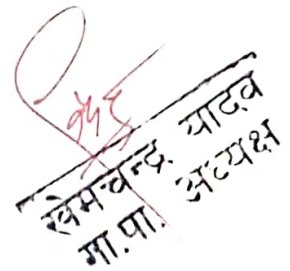 खेमचन्द्र यादव
गा.पा. अध्यक्ष